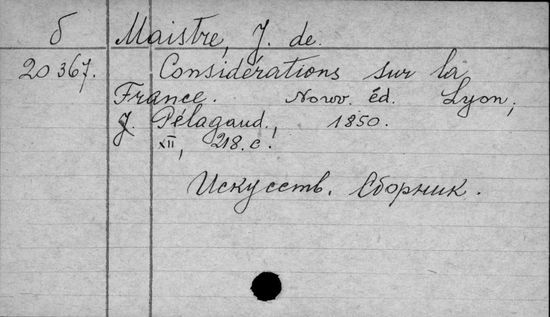 б Maistre, J. de.
20367. Considérations sur la
France. Nouv. éd. Lyon,
J. Pélagaud, 1850.
XII, 218.c.
Искусств. Сборник.